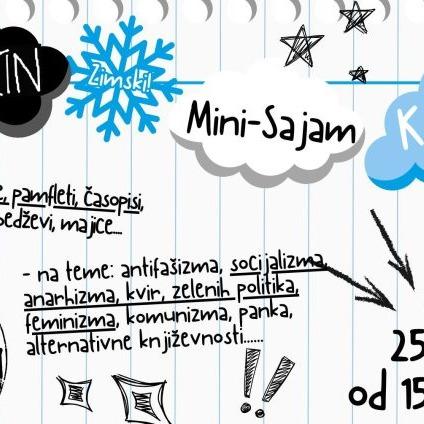 IN
Zimski!
Mini-Sajam
K
pamfleti, časopisi,
bedževi, majice....
- na teme: antifašizma, socijalizma,
anarhizma, kvir, zelenih politika,
feminizma, komunizma, panka,
alternativne književnosti......
!!
25
od 15